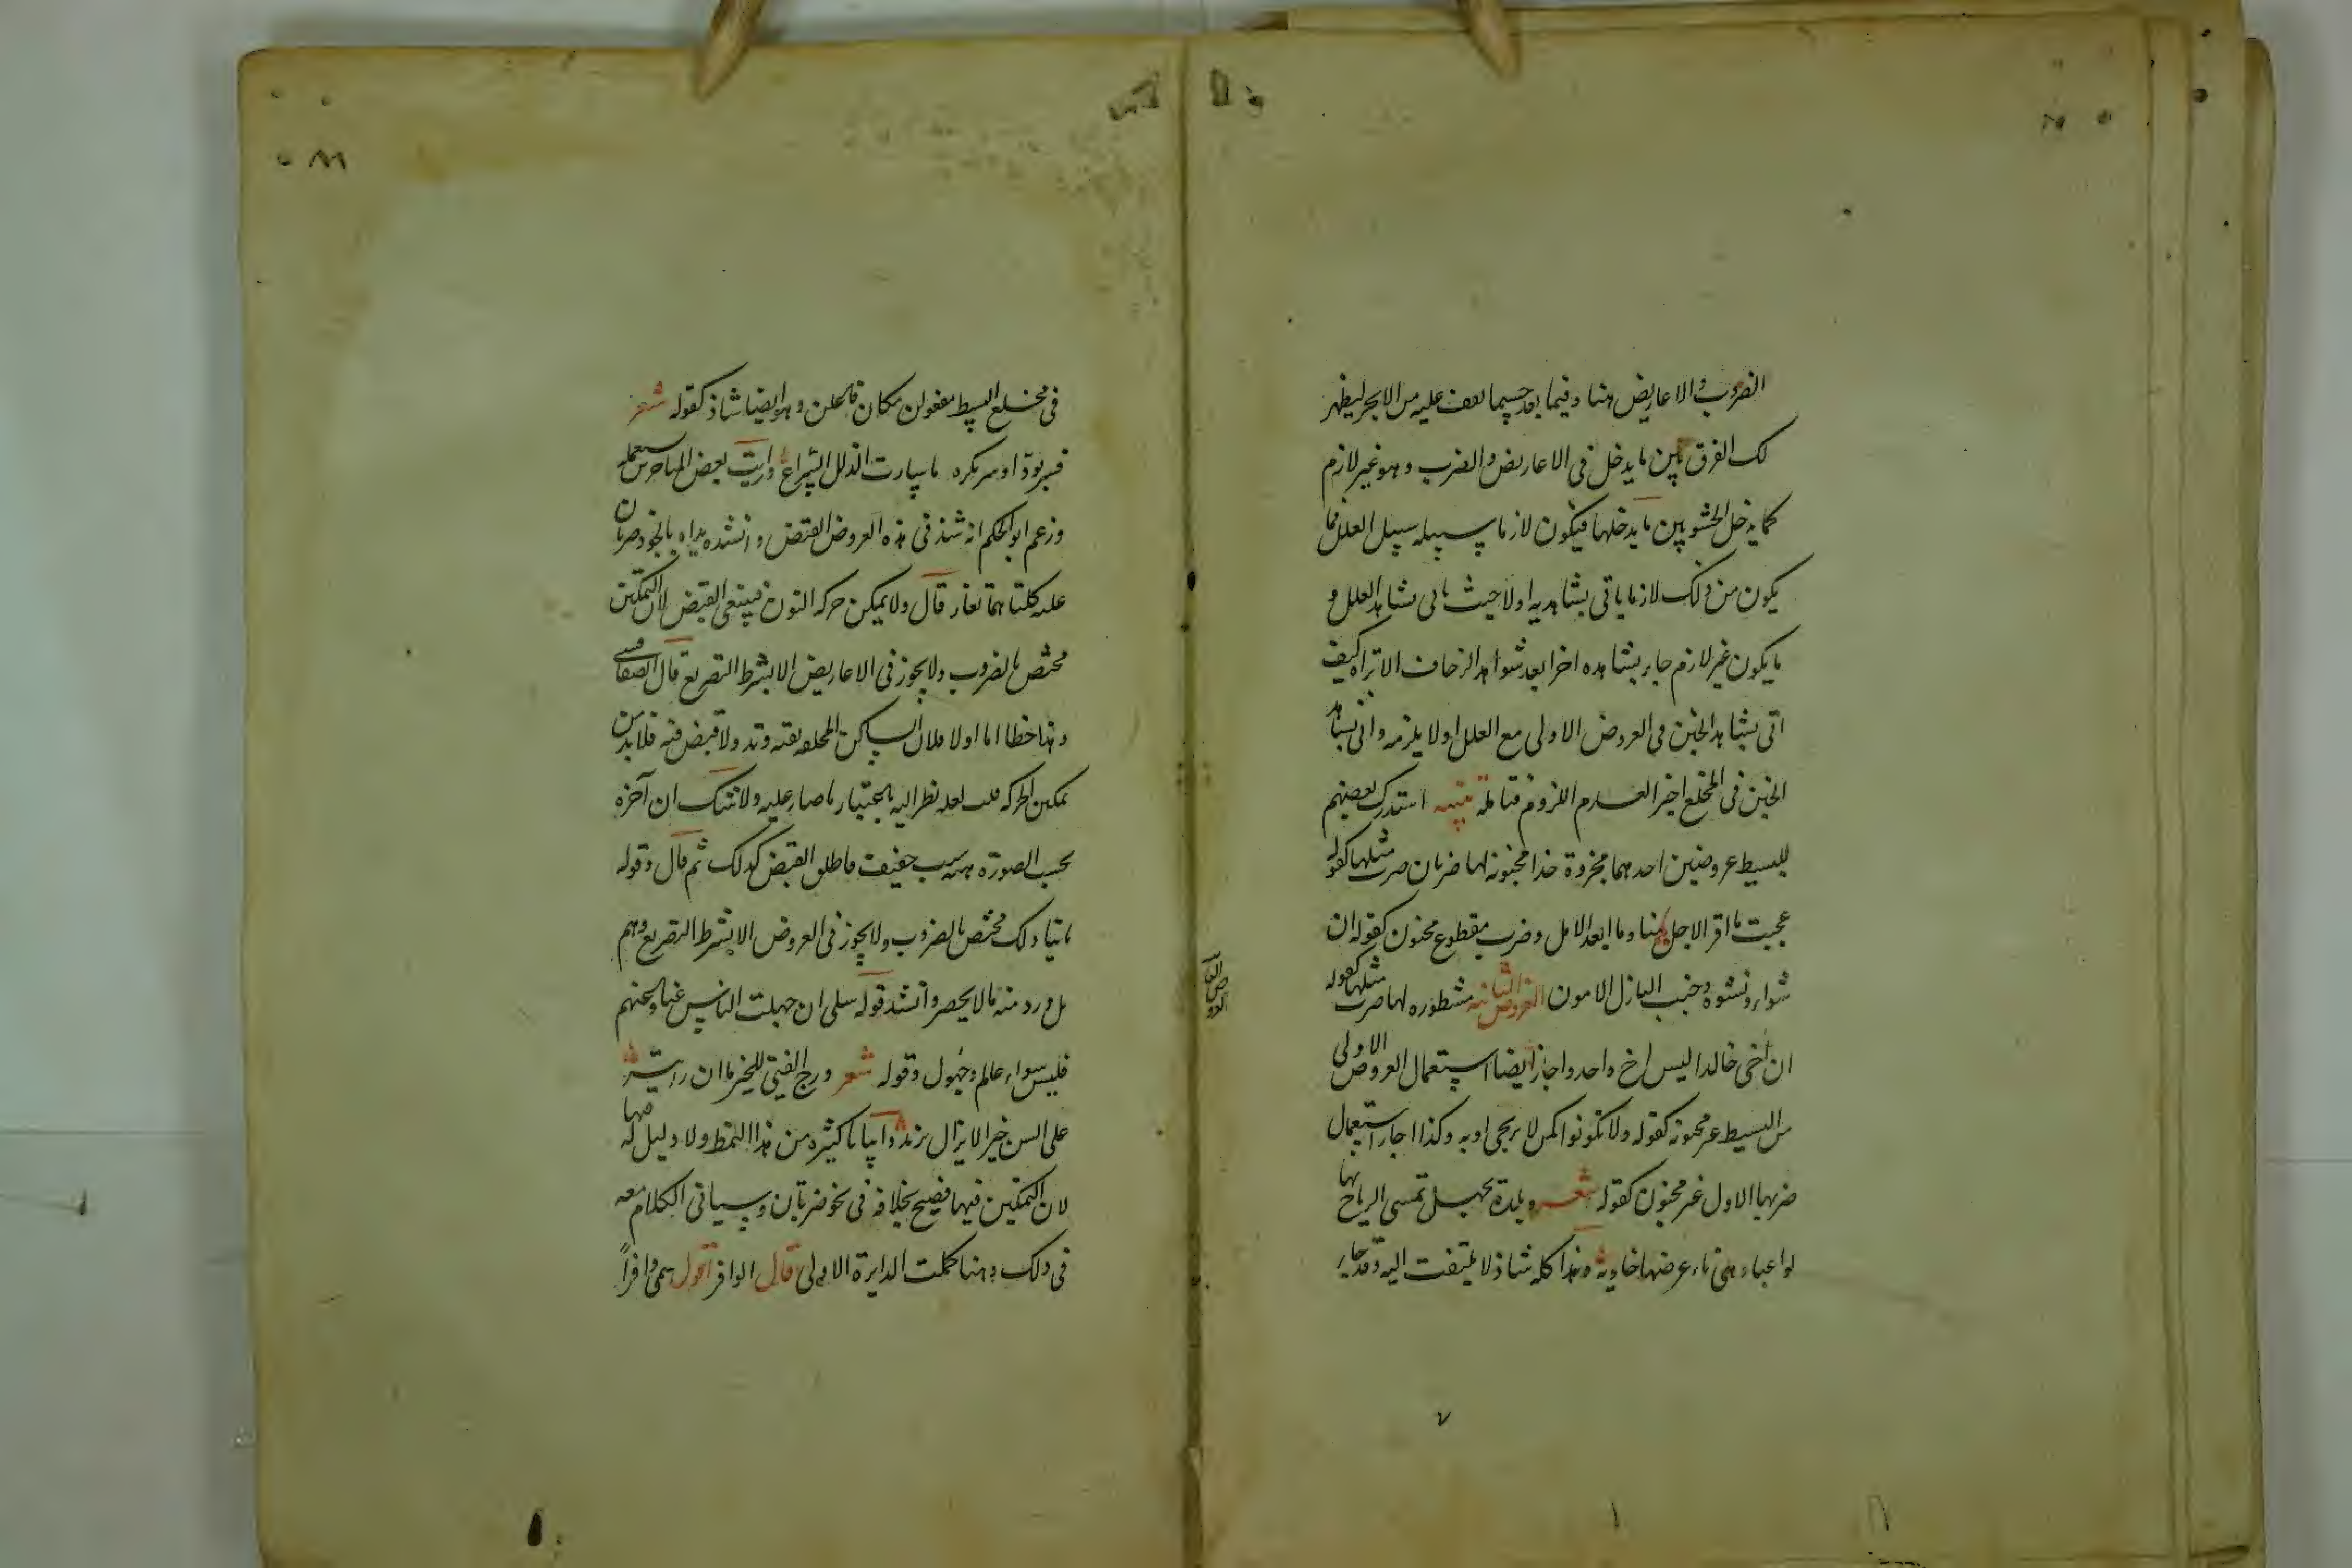 الضروب والاعاريض هنا وفيما بعد حسبما نقف عليه من الابحر ليظهر
لك الفرق بين ما يدخل فى الاعاريض والضرب وهو غير لازم
كما يدخل الحشو وبين ما يدخلها فيكون لازما سبيله سبيل العلل فما
يكون من ذلك لازما ياتى بشاهديه اولا حيث ياتى بشاهد العلل و
ما يكون غير لازم جاء بشاهده اخرا بعد شواهد الزحاف الا تراه كيف
اتى بشاهد الخبن فى العروض الاولى مع العلل اولا يلزمه واتى بشاهد
الخبن فى المخلع اخير العدم اللزوم فتامله تنبيه استدرك بعضهم
للبسيط عروضين احدهما مجزوة حذا مخبونه لها ضربان ضرب مثلها كقوله
عجبت ما اقرب الاجل منا وما ابعد الامل وضرب مقطوع مخبون كقوله ان
شواء ونشوة وخبب البازل الامون العروض الثانيه مشطوره لها ضرب مثلها كقوله
ان اخى خالدا ليس اخ واحد واجاز ايضا استعمال العروض الاولى
من البسيط غير مخبونه كقوله ولا تكونوا كمن لا يرتجى اوبه وكذا اجاز استعمال
ضربها الاول غير مخبون كقوله شعر وبلدة مجهل تمسى الرياح بها
لواغبا وهى ناء عرضها خاويه وهذا كله شاذ لا يلتفت اليه وقد جاء
فى مخلع البسيط مفعولن مكان فاعلن وهو ايضا شاذ كقوله شعر
فسر بود او سر بكره ما سارت الذلل السراع ورايت بعض المهاجرين استعمله
وزعم ابو الحكم انه شذ فى هذه العروض القبض وانشده يداه بالجود ضرتان
عليه كلتاهما تغار قال ولا يمكن حركه النون فينتفى القبض لان التمكين
مختص بالضروب ولا يجوز فى الاعاريض الا بشرط التصريع قال الصفاقسى
وهذا خطا اما اولا فلان الساكن المحله بقيته وتد ولا قبض فيه فلابد من
تمكين الحركه قلت لعله نظر اليه باعتبار ما صار عليه ولا شك ان آخره
بحسب الصورة سبب خفيف فاطلق القبض كذلك ثم قال وقوله
ثانيا ذلك مختص بالضروب ولا يجوز فى العروض الا بشرط التصريع وهم
بل ورد منه ما لا يحصر وانشد قوله سلى ان جهلت الناس عنا وعنهم
فليس سواء عالم وجهول وقوله شعر ورج الفتى للخير ما ان رايته
على السن خيرا لا يزال يزيد وابياتا كثيره من هذا النمط ولا دليل له فيها
لان التمكين فيها فصيح بخلافه فى نحو ضرتان وسياتى الكلام معه
فى ذلك وهنا كملت الدايرة الاولى قال الوافر اقول سمى وافرا